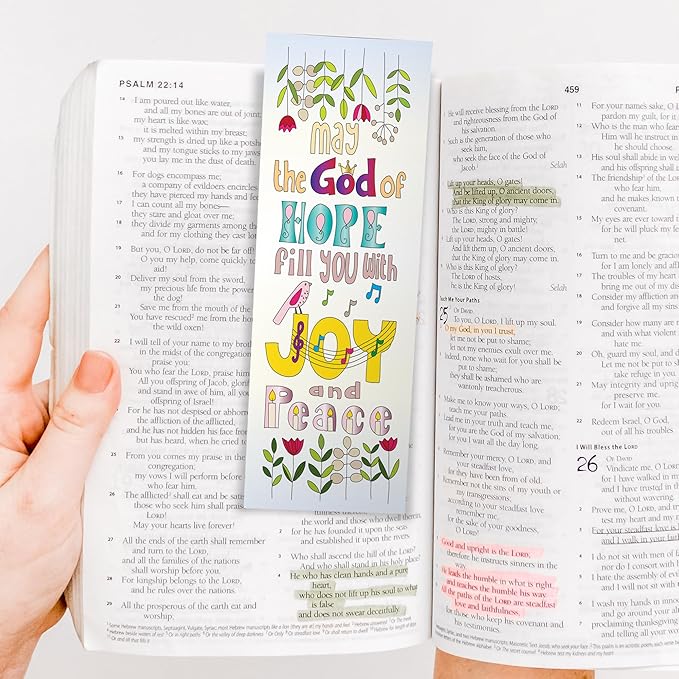 PSALM 22:14
14 I am poured out like water,
and all my bones are out of joint;
my heart is like wax;
it is melted within my breast;
15 my strength is dried up like a potshe
and my tongue sticks to my jaws
you lay me in the dust of death.
16 For dogs encompass me;
a company of evildoers encircles
they have pierced my hands and fee
17 I can count all my bones—
they stare and gloat over me;
18 they divide my garments among the
and for my clothing they cast lot
19 But you, O LORD, do not be far off!
O you my help, come quickly to
aid!
20 Deliver my soul from the sword,
my precious life from the power
the dog!
21 Save me from the mouth of the
You have rescued me from the
the wild oxen!
22 I will tell of your name to my broth
in the midst of the congregation
praise you:
23 You who fear the LORD, praise him
All you offspring of Jacob, glorify
and stand in awe of him, all you
offspring of Israel!
24 For he has not despised or abhorre
the affliction of the afflicted
and he has not hidden his face from
but has heard, when he cried to
25 From you comes my praise in the
congregation;
my vows I will perform before
who fear him.
26 The afflicted shall eat and be satis
those who seek him shall praise
LORD!
May your hearts live forever!
27 All the ends of the earth shall remember
and turn to the LORD,
and all the families of the nations
shall worship before you.
28 For kingship belongs to the LORD,
and he rules over the nations.
29 All the prosperous of the earth eat and
worship;
may
the God of
HOPE
fill you with
JOY
and
Peace
the world and those who dwell therein,
2 for he has founded it upon the seas
and established it upon the rivers.
3 Who shall ascend the hill of the LORD?
And who shall stand in his holy place?
4 He who has clean hands and a pure
heart,
who does not lift up his soul to what
is false
and does not swear deceitfully.
459
5 He will receive blessing from the LORD
and righteousness from the God of
his salvation.
6 Such is the generation of those who
seek him,
who seek the face of the God of
Jacob. Selah
7 Lift up your heads, O gates!
And be lifted up, O ancient doors,
that the King of glory may come in.
8 Who is this King of glory?
The LORD, strong and mighty,
the LORD, mighty in battle!
9 Lift up your heads, O gates!
And lift them up, O ancient doors,
that the King of glory may come in.
10 Who is this King of glory?
The LORD of hosts,
he is the King of glory! Selah
Teach Me Your Paths
25 OF DAVID.
To you, O LORD, I lift up my soul.
2 O my God, in you I trust;
let me not be put to shame;
let not my enemies exult over me.
3 Indeed, none who wait for you shall be
put to shame;
they shall be ashamed who are
wantonly treacherous.
4 Make me to know your ways, O LORD;
teach me your paths.
5 Lead me in your truth and teach me,
for you are the God of my salvation;
for you I wait all the day long.
6 Remember your mercy, O LORD, and
your steadfast love,
for they have been from of old.
7 Remember not the sins of my youth or
my transgressions;
according to your steadfast love
remember me,
for the sake of your goodness,
O LORD!
8 Good and upright is the LORD;
therefore he instructs sinners in the
way.
9 He leads the humble in what is right,
and teaches the humble his way.
10 All the paths of the LORD are steadfast
love and faithfulness,
for those who keep his covenant and
his testimonies.
11 For your name's sake, O L
pardon my guilt, for it
12 Who is the man who fear
Him will he instruct in
he should choose.
13 His soul shall abide in well-
and his offspring shall i
14 The friendship of the LORD
who fear him,
and he makes known t
covenant.
15 My eyes are ever toward t
for he will pluck my fee
net.
16 Turn to me and be gracious
for I am lonely and affli
17 The troubles of my heart
bring me out of my dis
18 Consider my affliction and
and forgive all my sins.
19 Consider how many are m
and with what violent
hate me.
20 Oh, guard my soul, and del
Let me not be put to sh
take refuge in you.
21 May integrity and uprig
preserve me,
for I wait for you.
22 Redeem Israel, O God,
out of all his troubles
I Will Bless the LORD
26 OF DAVID.
Vindicate me, O L
for I have walked in m
and I have trusted in th
without wavering.
2 Prove me, O LORD, and tr
test my heart and my m
3 For your steadfast love is
and I walk in your faith
4 I do not sit with men of fa
nor do I consort with h
5 I hate the assembly of evil
and I will not sit with
6 I wash my hands in innoc
and go around your al
7 proclaiming thanksgiving
and telling all your wo